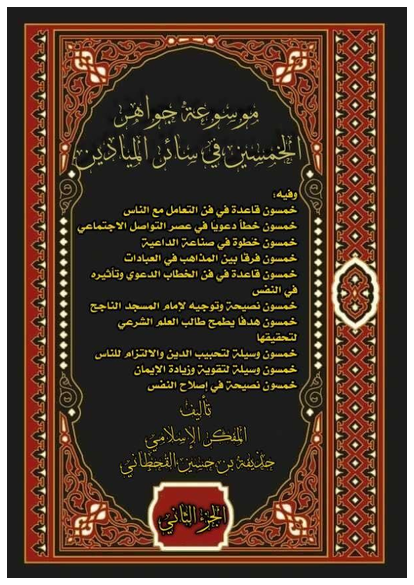 موسوعة جواهر
الخمسين في سائر الميادين
وفيه:
خمسون قاعدة في فن التعامل مع الناس
خمسون خطأ دعويا في عصر التواصل الاجتماعي
خمسون خطوة في صناعة الداعية
خمسون فرقًا بين المذاهب في العبادات
خمسون قاعدة في فن الخطاب الدعوي وتأثيره
في النفس
خمسون نصيحة وتوجيه لامام المسجد الناجح
خمسون هدفًا يطمح طالب العلم الشرعي
لتحقيقها
خمسون وسيلة لتحبيب الدين والالتزام للناس
خمسون وسيلة لتقوية وزيادة الإيمان
خمسون نصيحة في إصلاح النفس
تأليف
المفكر الإسلامي
حذيفة بن حسين القحطاني
الجزء الثاني